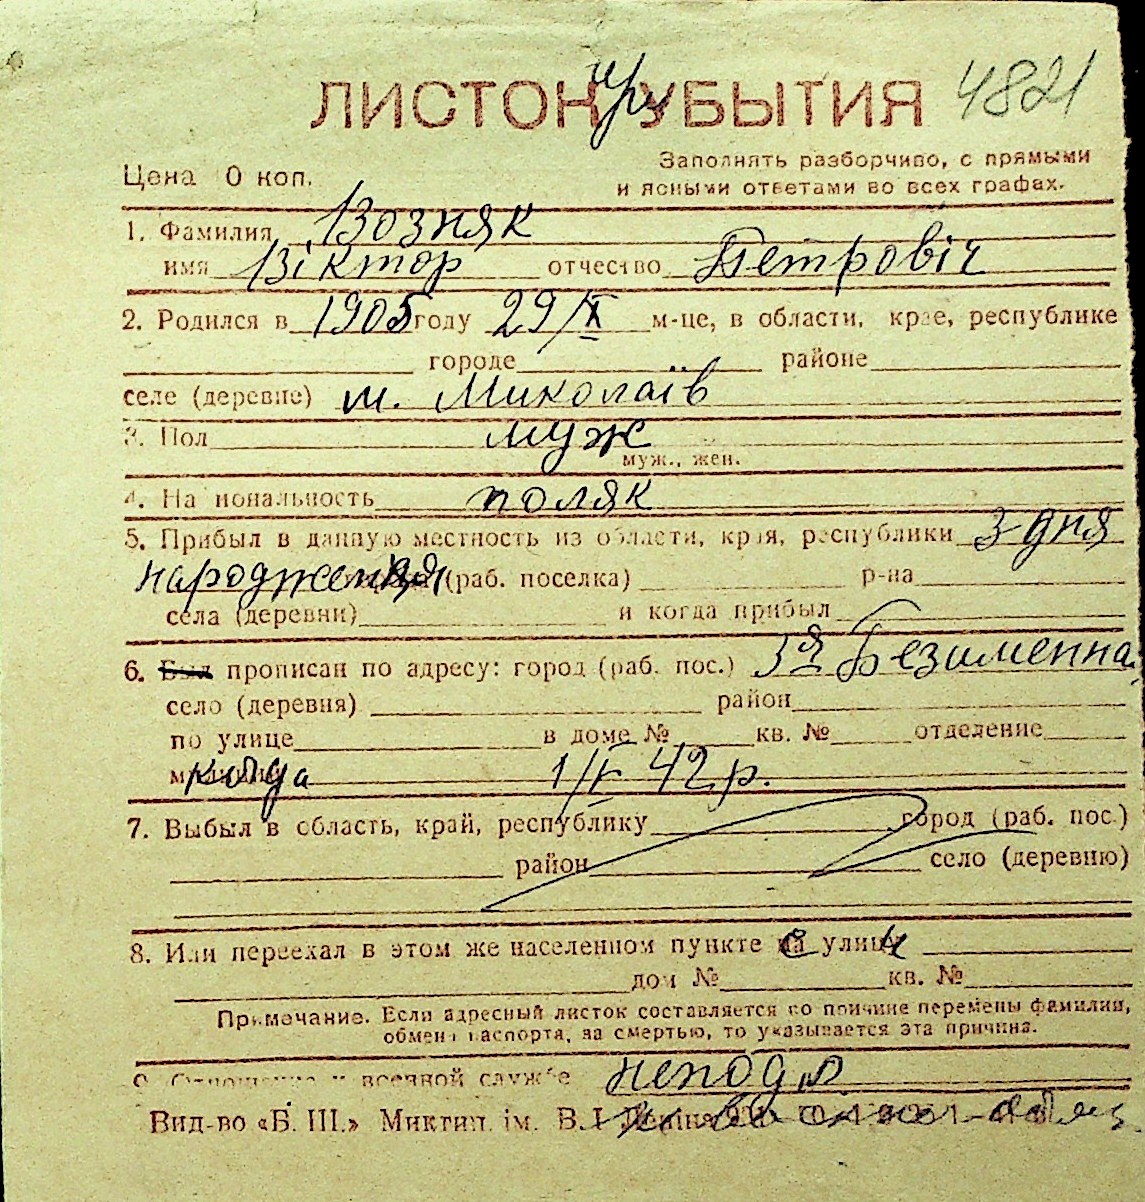 ЛИСТОК при УБЫТИЯ 4821
Цена 0 коп.
Заполнять разборчиво, с прямыми
и ясными ответами во всех графах.
1. Фамилия Возняк
имя Віктор отчество Петровіч
2. Родился в 1905 году 29/X м-це, в области, крае, республике
городе районе
селе (деревне) м. Миколаїв
3. Пол муж
муж., жен.
4. Национальность поляк
5. Прибыл в данную местность из области, края, республики з дня
народження (раб. поселка) р-на
села (деревни) и когда прибыл
6. Был прописан по адресу: город (раб. пос.) 3я Безименна
село (деревня) район
по улице в доме № кв. № отделение
милиции куда 1/V 42 р.
7. Выбыл в область, край, республику город (раб. пос.)
район село (деревню)
8. Или переехал в этом же населенном пункте с улицы
дом № кв. №
Примечание. Если адресный листок составляется по причине перемены фамилии,
обмена паспорта, за смертью, то указывается эта причина.
9. Отношение к военной службе
Вид-во «Б. Ш.» Миктип. ім. В. І. Леніна